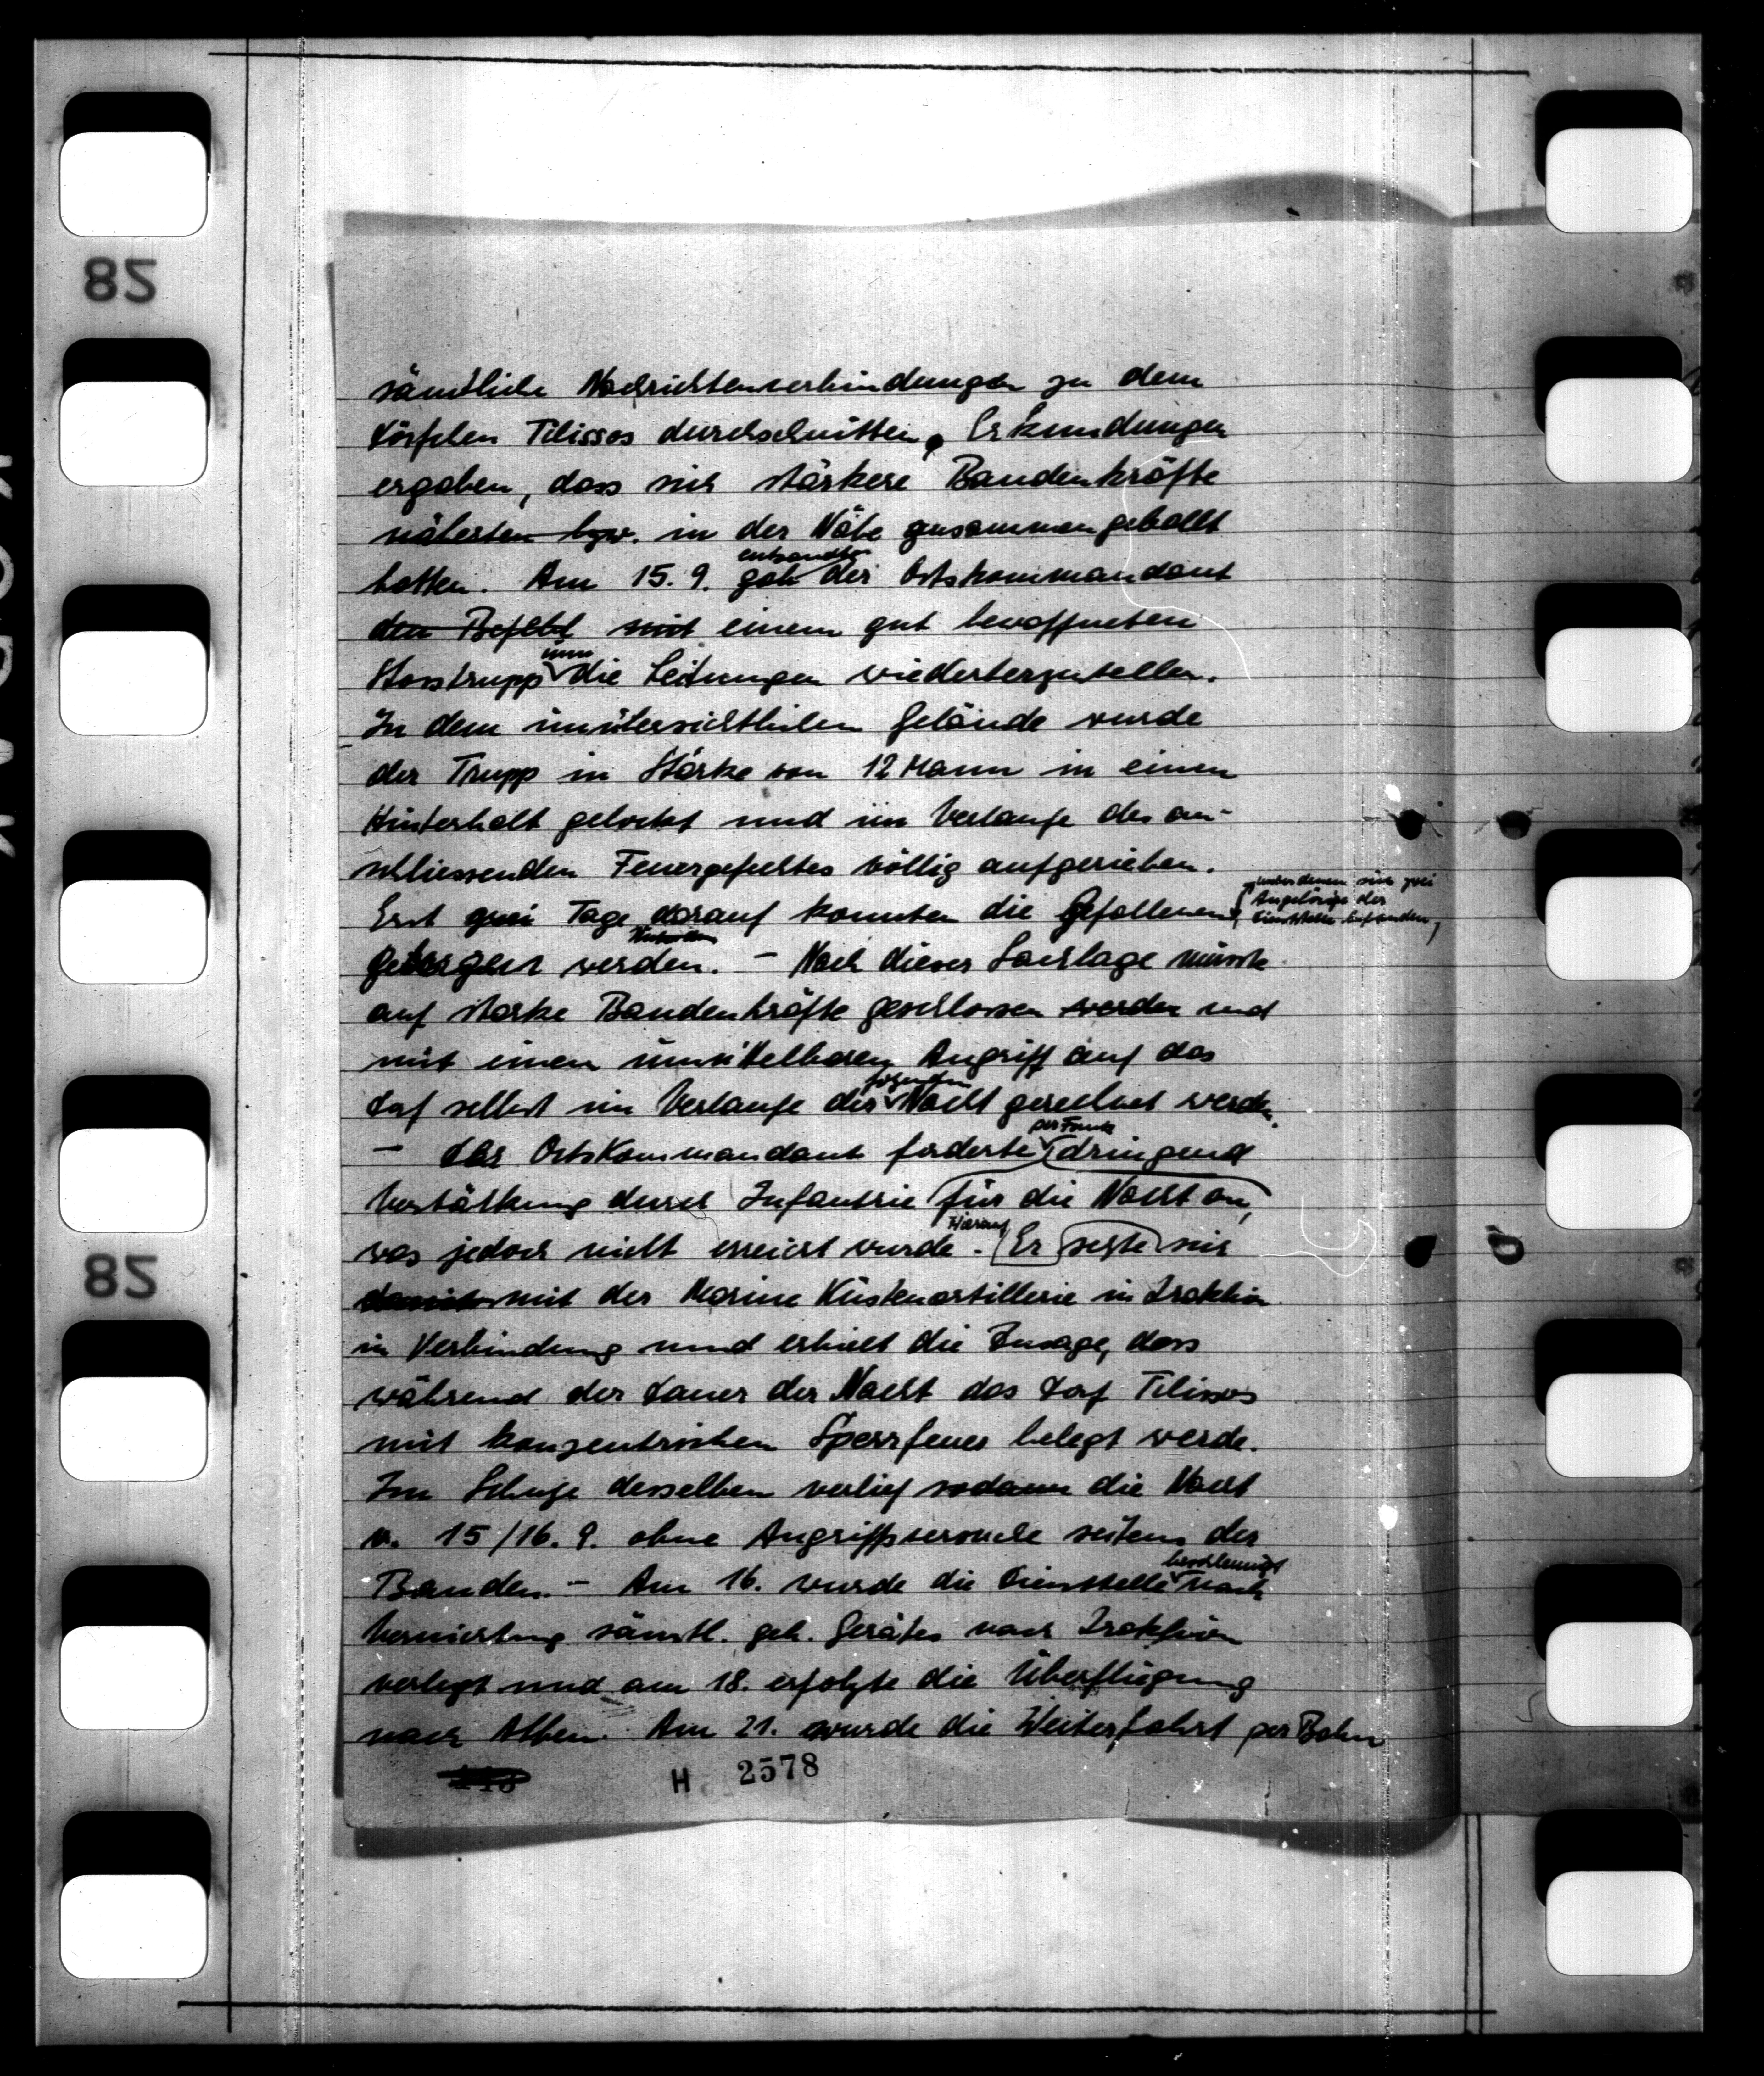 sämtliche Nachrichtenverbindungen zu dem
Dörfchen Tilissos durchschnitten. Erkundungen
ergaben, dass sich stärkere Bandenkräfte
näherten bzw. in der Nähe zusammengeballt
hatten. Am 15. 9. gab entsandte der Ortskommandant
den Befehl mit einem gut bewaffneten
Stosstrupp um die Leitungen wiederherzustellen.
In dem unübersichtlichen Gelände wurde
der Trupp in Stärke von 12 Mann in einen
Hinterhalt gelockt und im Verlaufe des an-
schliessenden Feuergefechtes völlig aufgerieben.
Erst zwei Tage darauf konnten die Gefallenen, unter denen sich zwei
Angehörige der
Dienststelle befanden,
geborgen werden. – Nach dieser Sachlage musste
auf starke Bandenkräfte geschlossen werden und
mit einem unmittelbaren Angriff auf das
Dorf selbst im Verlaufe der folgenden Nacht gerechnet werden.
– Der Ortskommandant forderte per Funk dringend
Verstärkung durch Infantrie für die Nacht an,
was jedoch nicht erreicht wurde. Hierauf Er setzte sich
mit der Marine Küstenartillerie in Iraklion
in Verbindung und erhielt die Zusage, dass
während der Dauer der Nacht das Dorf Tilissos
mit konzentrischem Sperrfeuer belegt werde.
Im Schutze desselben verlief sodann die Nacht
v. 15/16. 9. ohne Angriffsversuche seitens der
Banden. – Am 16. wurde die Dienststelle beschleunigt nach
Vernichtung sämtl. geh. Gerätes nach Iraklion
verlegt und am 18. erfolgte die Überfliegung
nach Athen. Am 21. wurde die Weiterfahrt per Bahn
H 2578
82
82